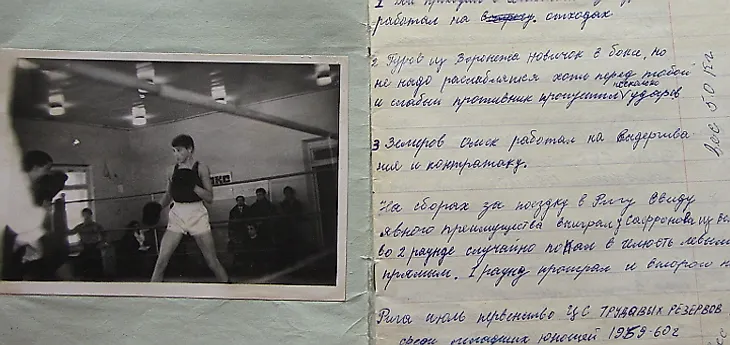 работал на отходах
2 Гуров из Воронежа новичок в боксе, но
не надо расслабляться хотя перед тобой
и слабый противник пропустил несколько ударов
3 Земеров Омск работал на выдергива
ния и контратаку.
На сборах за поездку в Ригу ввиду
явного преимущества выиграл у Сафронова из
во 2 раунде случайно попал в челюсть левым
прямым. 1 раунд проиграл и второго
Рига июль первенство ЦС ТРУДАВЫХ РЕЗЕРВОВ
среди младших юношей 1959-60г
вес 50 кг